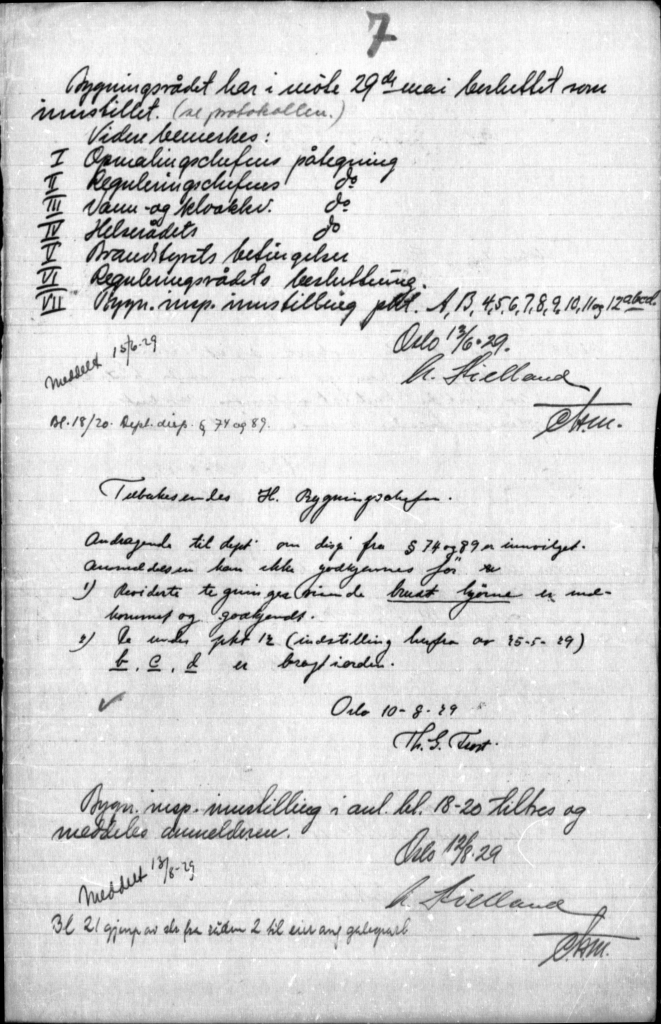 7
Bygningsrådet har i möte 29de mai besluttet som
innstillet. (se protokollen.)
Videre bemerkes:
I Opmålingschefens påtegning
II Reguleringschefens do
III Vann- og kloakkv. do
IV Helserådets do
V Brandstyrets betingelser
VI Reguleringsrådets beslutning.
VII Bygn. insp. innstilling pkt. A, B, 4, 5, 6, 7, 8, 9, 10, 11 og 12 abcd.
Oslo 13/6-29.
Meddelt 15/6-29
A. Kielland
Bl. 18/20. Dept. disp. § 74 og 89.
Tilbakesendes H. Bygningschefen.
Andragende til dept om disp fra § 74 og 89 er innvilget.
Anmeldelsen kan ikke godkjennes før
1) Reviderte tegninger visende brutt hjörne er inn-
kommet og godkjendt.
2) De under pkt 12 (indstilling herfra av 25-5-29)
b, c, d er bragt i orden.
Oslo 10-8-29
Th. G. Trost.
Bygn. insp. innstilling i anl. bl. 18-20 tiltres og
meddeles anmelderen.
Oslo 12/8-29
Meddelt 13/8-29
A. Kielland
Bl 21 gjenp av skr fra rådm 2 til eier ang